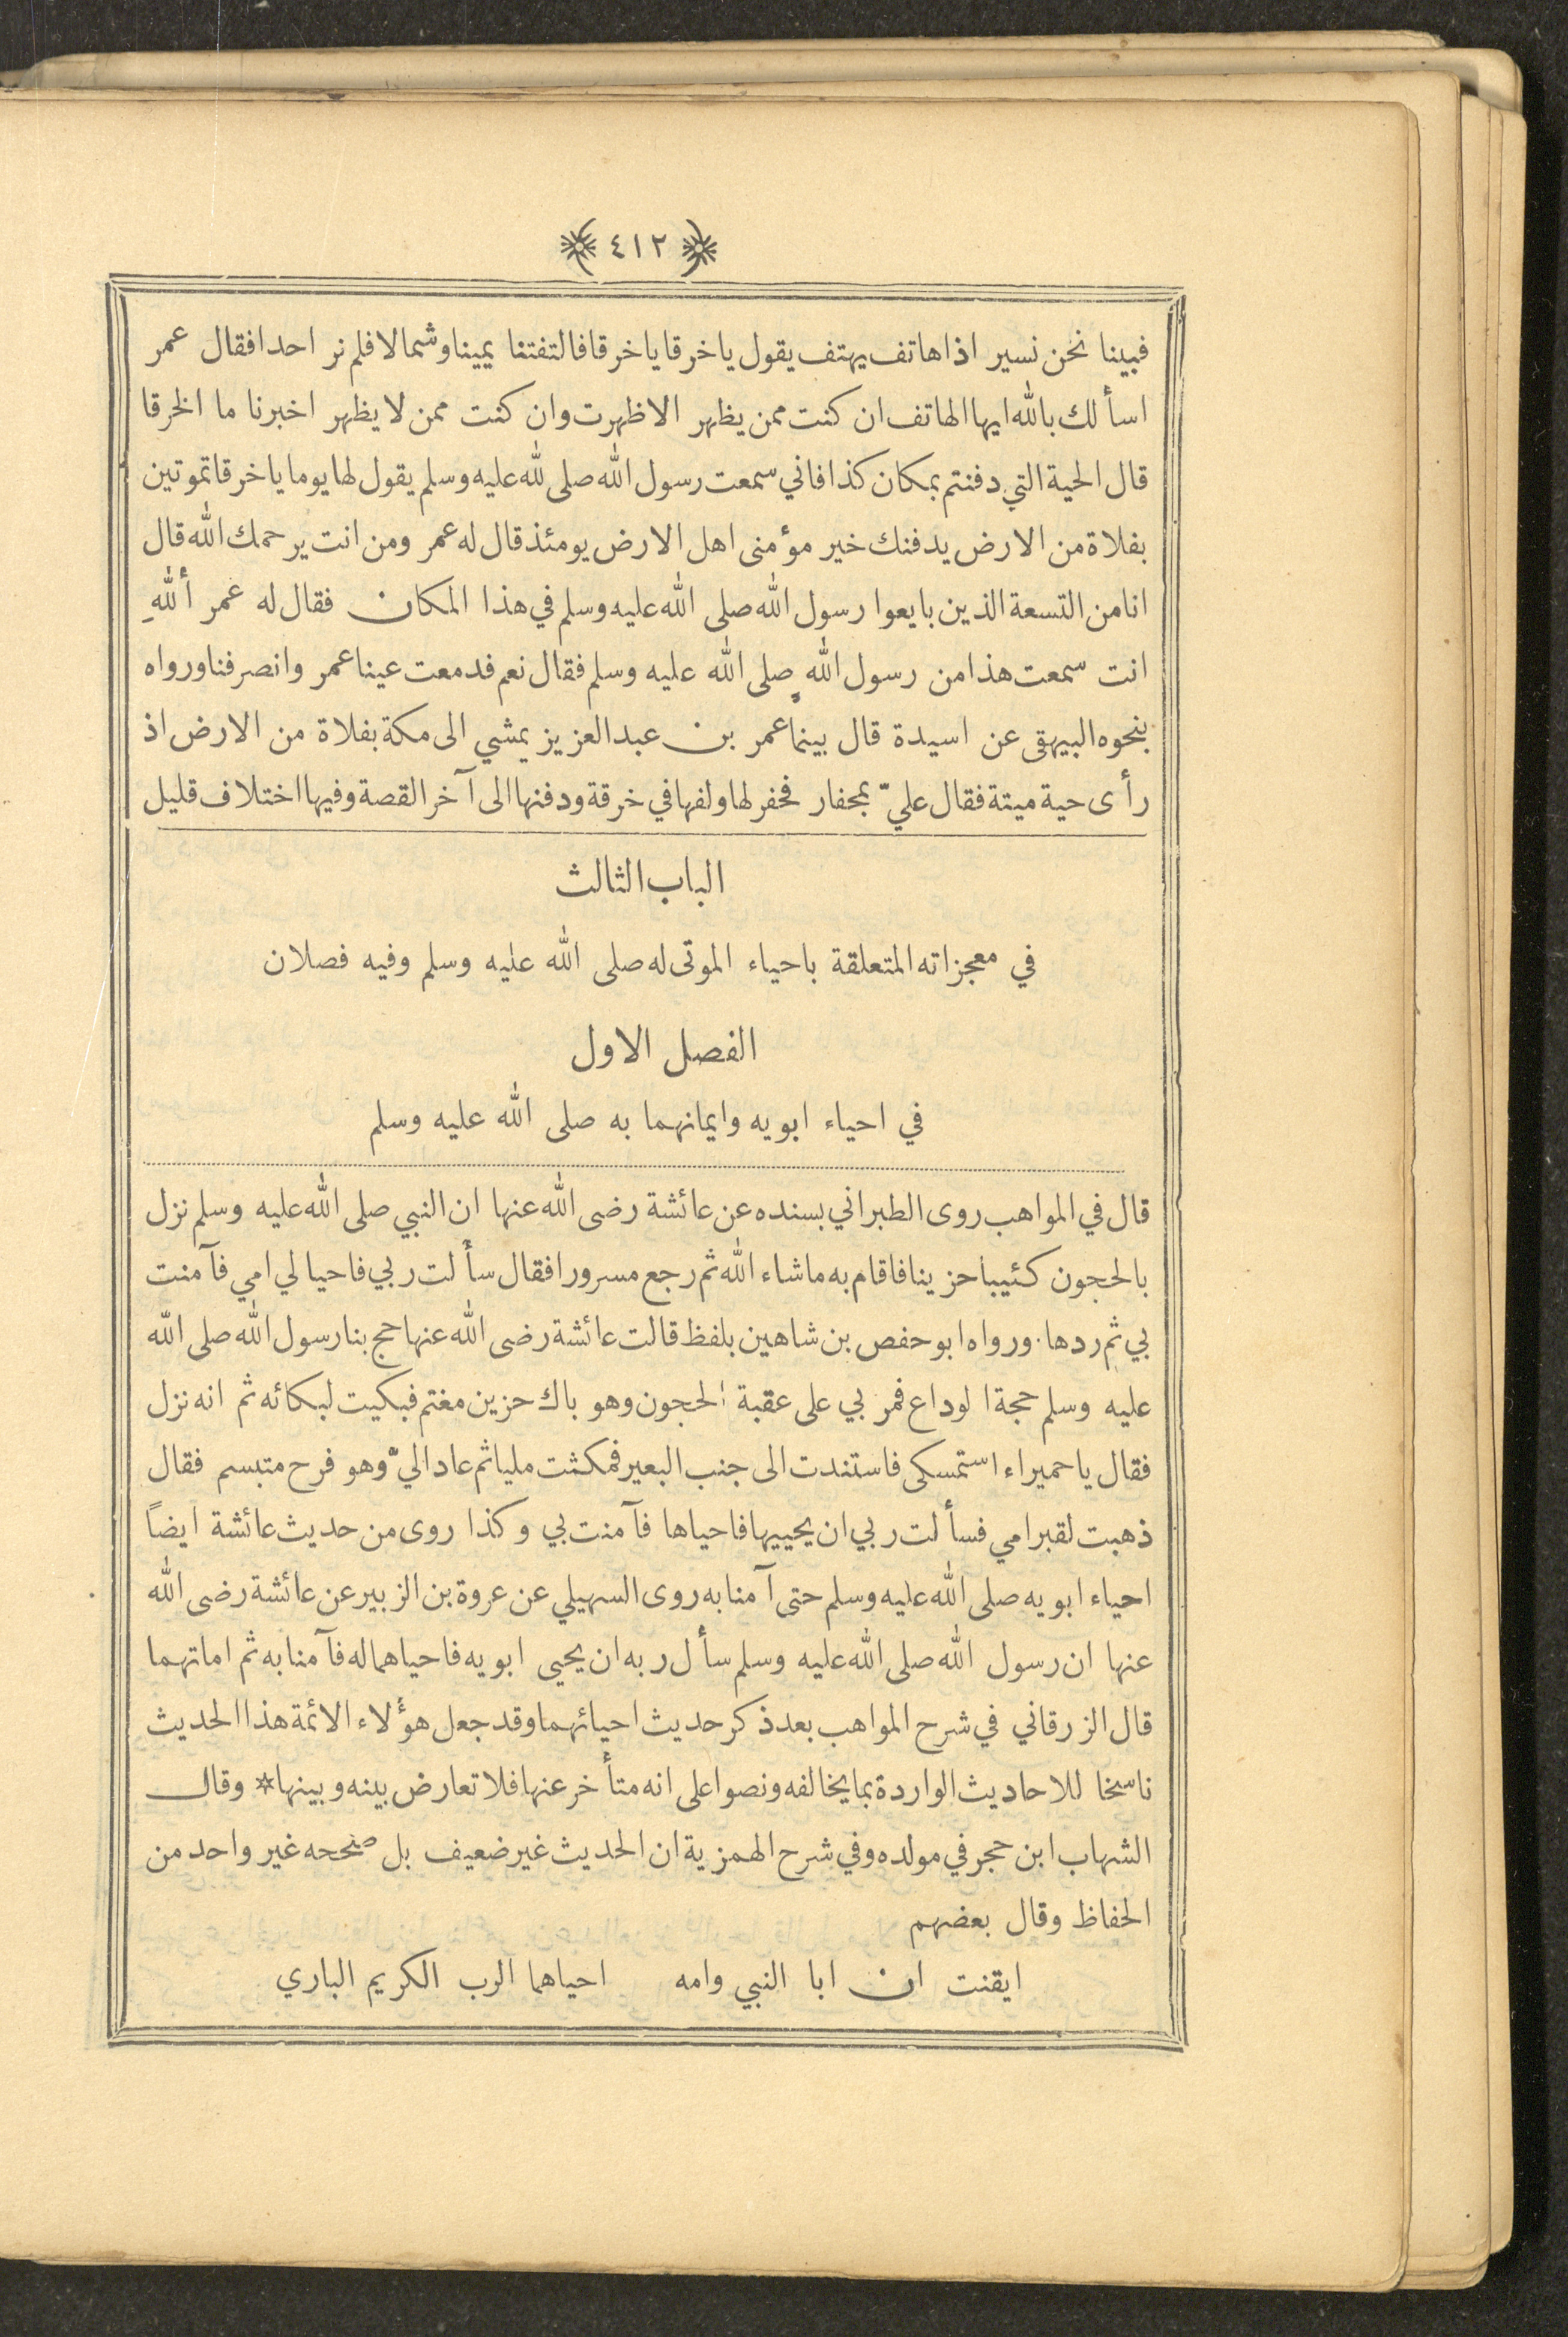 ﴿ ٤١٢ ﴾
فبينا نحن نسير اذا هاتف يهتف يقول ياخرقا ياخرقا فالتفتنا يمينا وشمالا فلم نر احدا فقال عمر
اسألك بالله ايها الهاتف ان كنت ممن يظهر الا ظهرت وان كنت ممن لا يظهر اخبرنا ما الخرقا
قال الحية التي دفنتم بمكان كذا فاني سمعت رسول الله صلى لله عليه وسلم يقول لها يوما ياخرقا تموتين
بفلاة من الارض يدفنك خير مؤمنى اهل الارض يومئذ قال له عمر ومن انت يرحمك الله قال
انا من التسعة الذين بايعوا رسول الله صلى الله عليه وسلم في هذا المكان فقال له عمر أللهِ
انت سمعت هذا من رسول الله صلى الله عليه وسلم فقال نعم فدمعت عينا عمر وانصرفنا ورواه
بنحوه البيهقى عن اسيدة قال بينما عمر بن عبد العزيز يمشي الى مكة بفلاة من الارض اذ
رأى حية ميتة فقال عليّ بمحفار فحفر لها ولفها في خرقة ودفنها الى آخر القصة وفيها اختلاف قليل
الباب الثالث
في معجزاته المتعلقة باحياء الموتى له صلى الله عليه وسلم وفيه فصلان
الفصل الاول
في احياء ابويه وايمانهما به صلى الله عليه وسلم
قال في المواهب روى الطبراني بسنده عن عائشة رضى الله عنها ان النبي صلى الله عليه وسلم نزل
بالحجون كئيبا حزينا فاقام به ماشاء الله ثم رجع مسرورا فقال سألت ربي فاحيا لي امي فآمنت
بي ثم ردها. ورواه ابو حفص بن شاهين بلفظ قالت عائشة رضى الله عنها حج بنا رسول الله صلى الله
عليه وسلم حجة الوداع فمر بي على عقبة الحجون وهو باك حزين مغتم فبكيت لبكائه ثم انه نزل
فقال ياحميراء استمسكى فاستندت الى جنب البعير فمكثت مليا ثم عاد اليّ وهو فرح متبسم فقال
ذهبت لقبر امي فسألت ربي ان يحييها فاحياها فآمنت بي وكذا روى من حديث عائشة ايضاً
احياء ابويه صلى الله عليه وسلم حتى آمنا به روى السهيلي عن عروة بن الزبير عن عائشة رضى الله
عنها ان رسول الله صلى الله عليه وسلم سأل ربه ان يحيى ابويه فاحياهما له فآمنا به ثم اماتهما
قال الزرقاني في شرح المواهب بعد ذكر حديث احيائهما وقد جعل هؤلاء الائمة هذا الحديث
ناسخا للاحاديث الواردة بما يخالفه ونصوا على انه متأخر عنها فلا تعارض بينه وبينها * وقال
الشهاب ابن حجر في مولده وفي شرح الهمزية ان الحديث غير ضعيف بل صححه غير واحد من
الحفاظ وقال بعضهم
ايقنت ان ابا النبي وامه احياهما الرب الكريم الباري